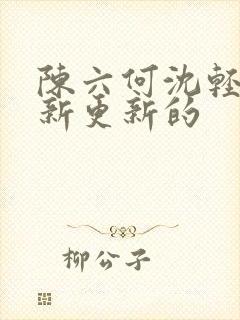 陳六何沈輕
新更新的
柳公子